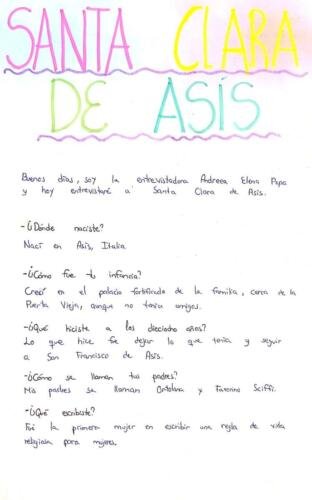 SANTA CLARA
DE ASÍS
Buenos días, soy la entrevistadora Andreea Elena Popa
y hoy entrevistaré a Santa Clara de Asís.
-¿Dónde naciste?
Nací en Asís, Italia.
-¿Cómo fue tu infancia?
Crecí en el palacio fortificado de la familia, cerca de la
Puerta Vieja, aunque no tenía amigos.
-¿Qué hiciste a los dieciocho años?
Lo que hice fue dejar lo que tenía y seguir
a San Francisco de Asís.
-¿Cómo se llaman tus padres?
Mis padres se llaman Ortolana y Favorino Sciffi.
-¿Qué escribiste?
Fui la primera mujer en escribir una regla de vida
religiosa para mujeres.